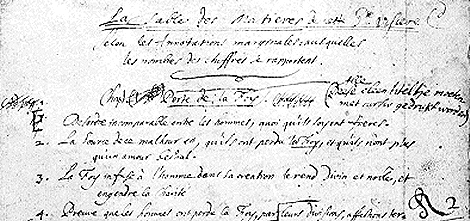 La Table des Matieres de cette
selon les Annotations marginales ausquelles
les nombres des chiffres se rapportent.
Chap. Perte de la Foy.
Alle
dese cleen titeltje moeten
met cursyf gedrukt worden
Desordre incomparable entre les hommes, quoi qu'ils soyent freres.
2. La source de ce malheur est, qu'ils ont perdu la Foy, et qu'ils n'ont plus
qu'un amour bestial.
3. La Foy infuse à l'homme dans sa creation le rend Divin et noble, et
engendre la Charité
4. Preuve que les hommes ont perdu la Foy, par leurs discours, affections
2